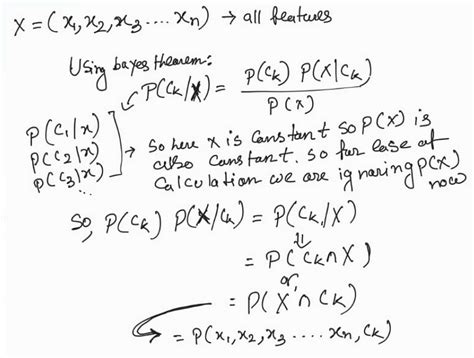 X = (x₁, x₂, x₃ .... xₙ) → all features
Using bayes theorem:
P(Cₖ/X) = P(Cₖ) P(X|Cₖ) / P(x)
P(C₁/x)
P(C₂/x)
P(C₃/x)
...
→ So here x is constant so P(X) is
also constant. So for ease of
calculation we are ignoring P(X)
now
So, P(Cₖ) P(X/Cₖ) = P(Cₖ/X)
= P(Cₖ∩X)
or,
= P(X∩Cₖ)
→ = P(x₁, x₂, x₃ .... xₙ, Cₖ)